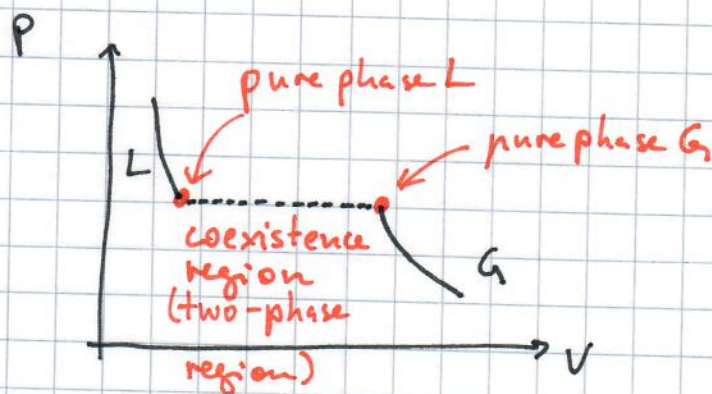 P
pure phase L
pure phase G
L
coexistence
region
(two-phase
region)
G
V